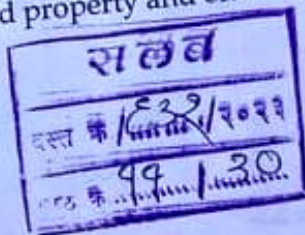 d property and
स ल ब
दस्त क्र /६३२/२०२३
क्र. ११ / ३०